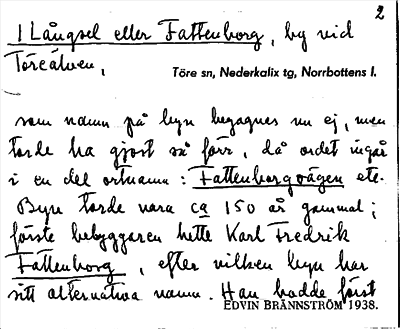 2
1 Långsel eller Fattenborg, by vid
Töreälven,
Töre sn, Nederkalix tg, Norrbottens l.
som namn på byn begagnes nu ej, men
torde ha gjort så förr, då ordet ingår
i en del ortnamn: Fattenborgvägen etc.
Byn torde vara ca 150 år gammal;
förste bebyggaren hette Karl Fredrik
Fattenborg, efter vilken byn har
sitt alternativa namn. Han hadde först
EDVIN BRÄNNSTRÖM 1938.